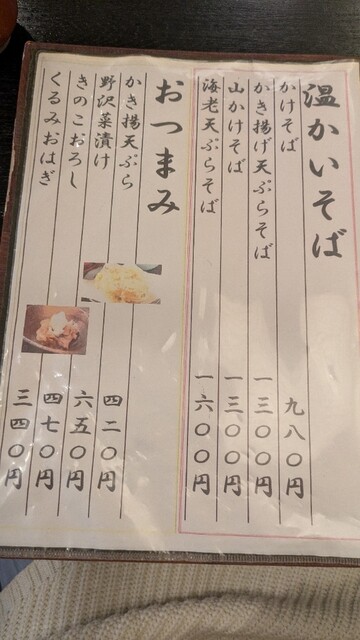 温かいそば
かけそば 九八〇円
かき揚げ天ぷらそば 一三〇〇円
山かけそば 一三〇〇円
海老天ぷらそば 一六〇〇円
おつまみ
かき揚天ぷら 四二〇円
野沢菜漬け 六五〇円
きのこおろし 四七〇円
くるみおはぎ 三四〇円